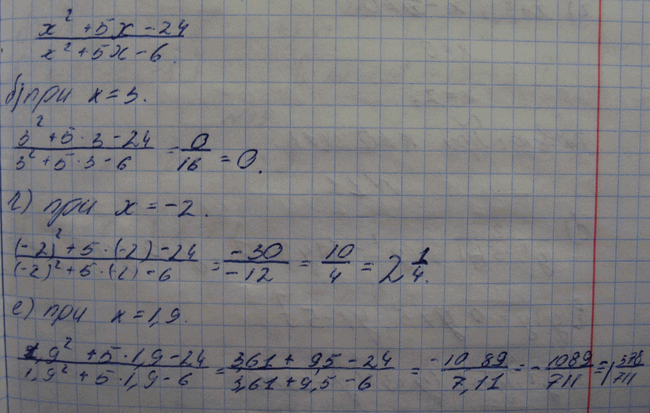 x² + 5x - 24 / x² + 5x - 6.
б) при x = 3.
3² + 5 · 3 - 24 / 3² + 5 · 3 - 6 = 0 / 16 = 0.
г) при x = -2.
(-2)² + 5 · (-2) - 24 / (-2)² + 5 · (-2) - 6 = -30 / -12 = 10 / 4 = 2 1/4.
е) при x = 1,9.
1,9² + 5 · 1,9 - 24 / 1,9² + 5 · 1,9 - 6 = 3,61 + 9,5 - 24 / 3,61 + 9,5 - 6 = -10 89 / 7,11 = - 1089 / 711 = 1 378/711